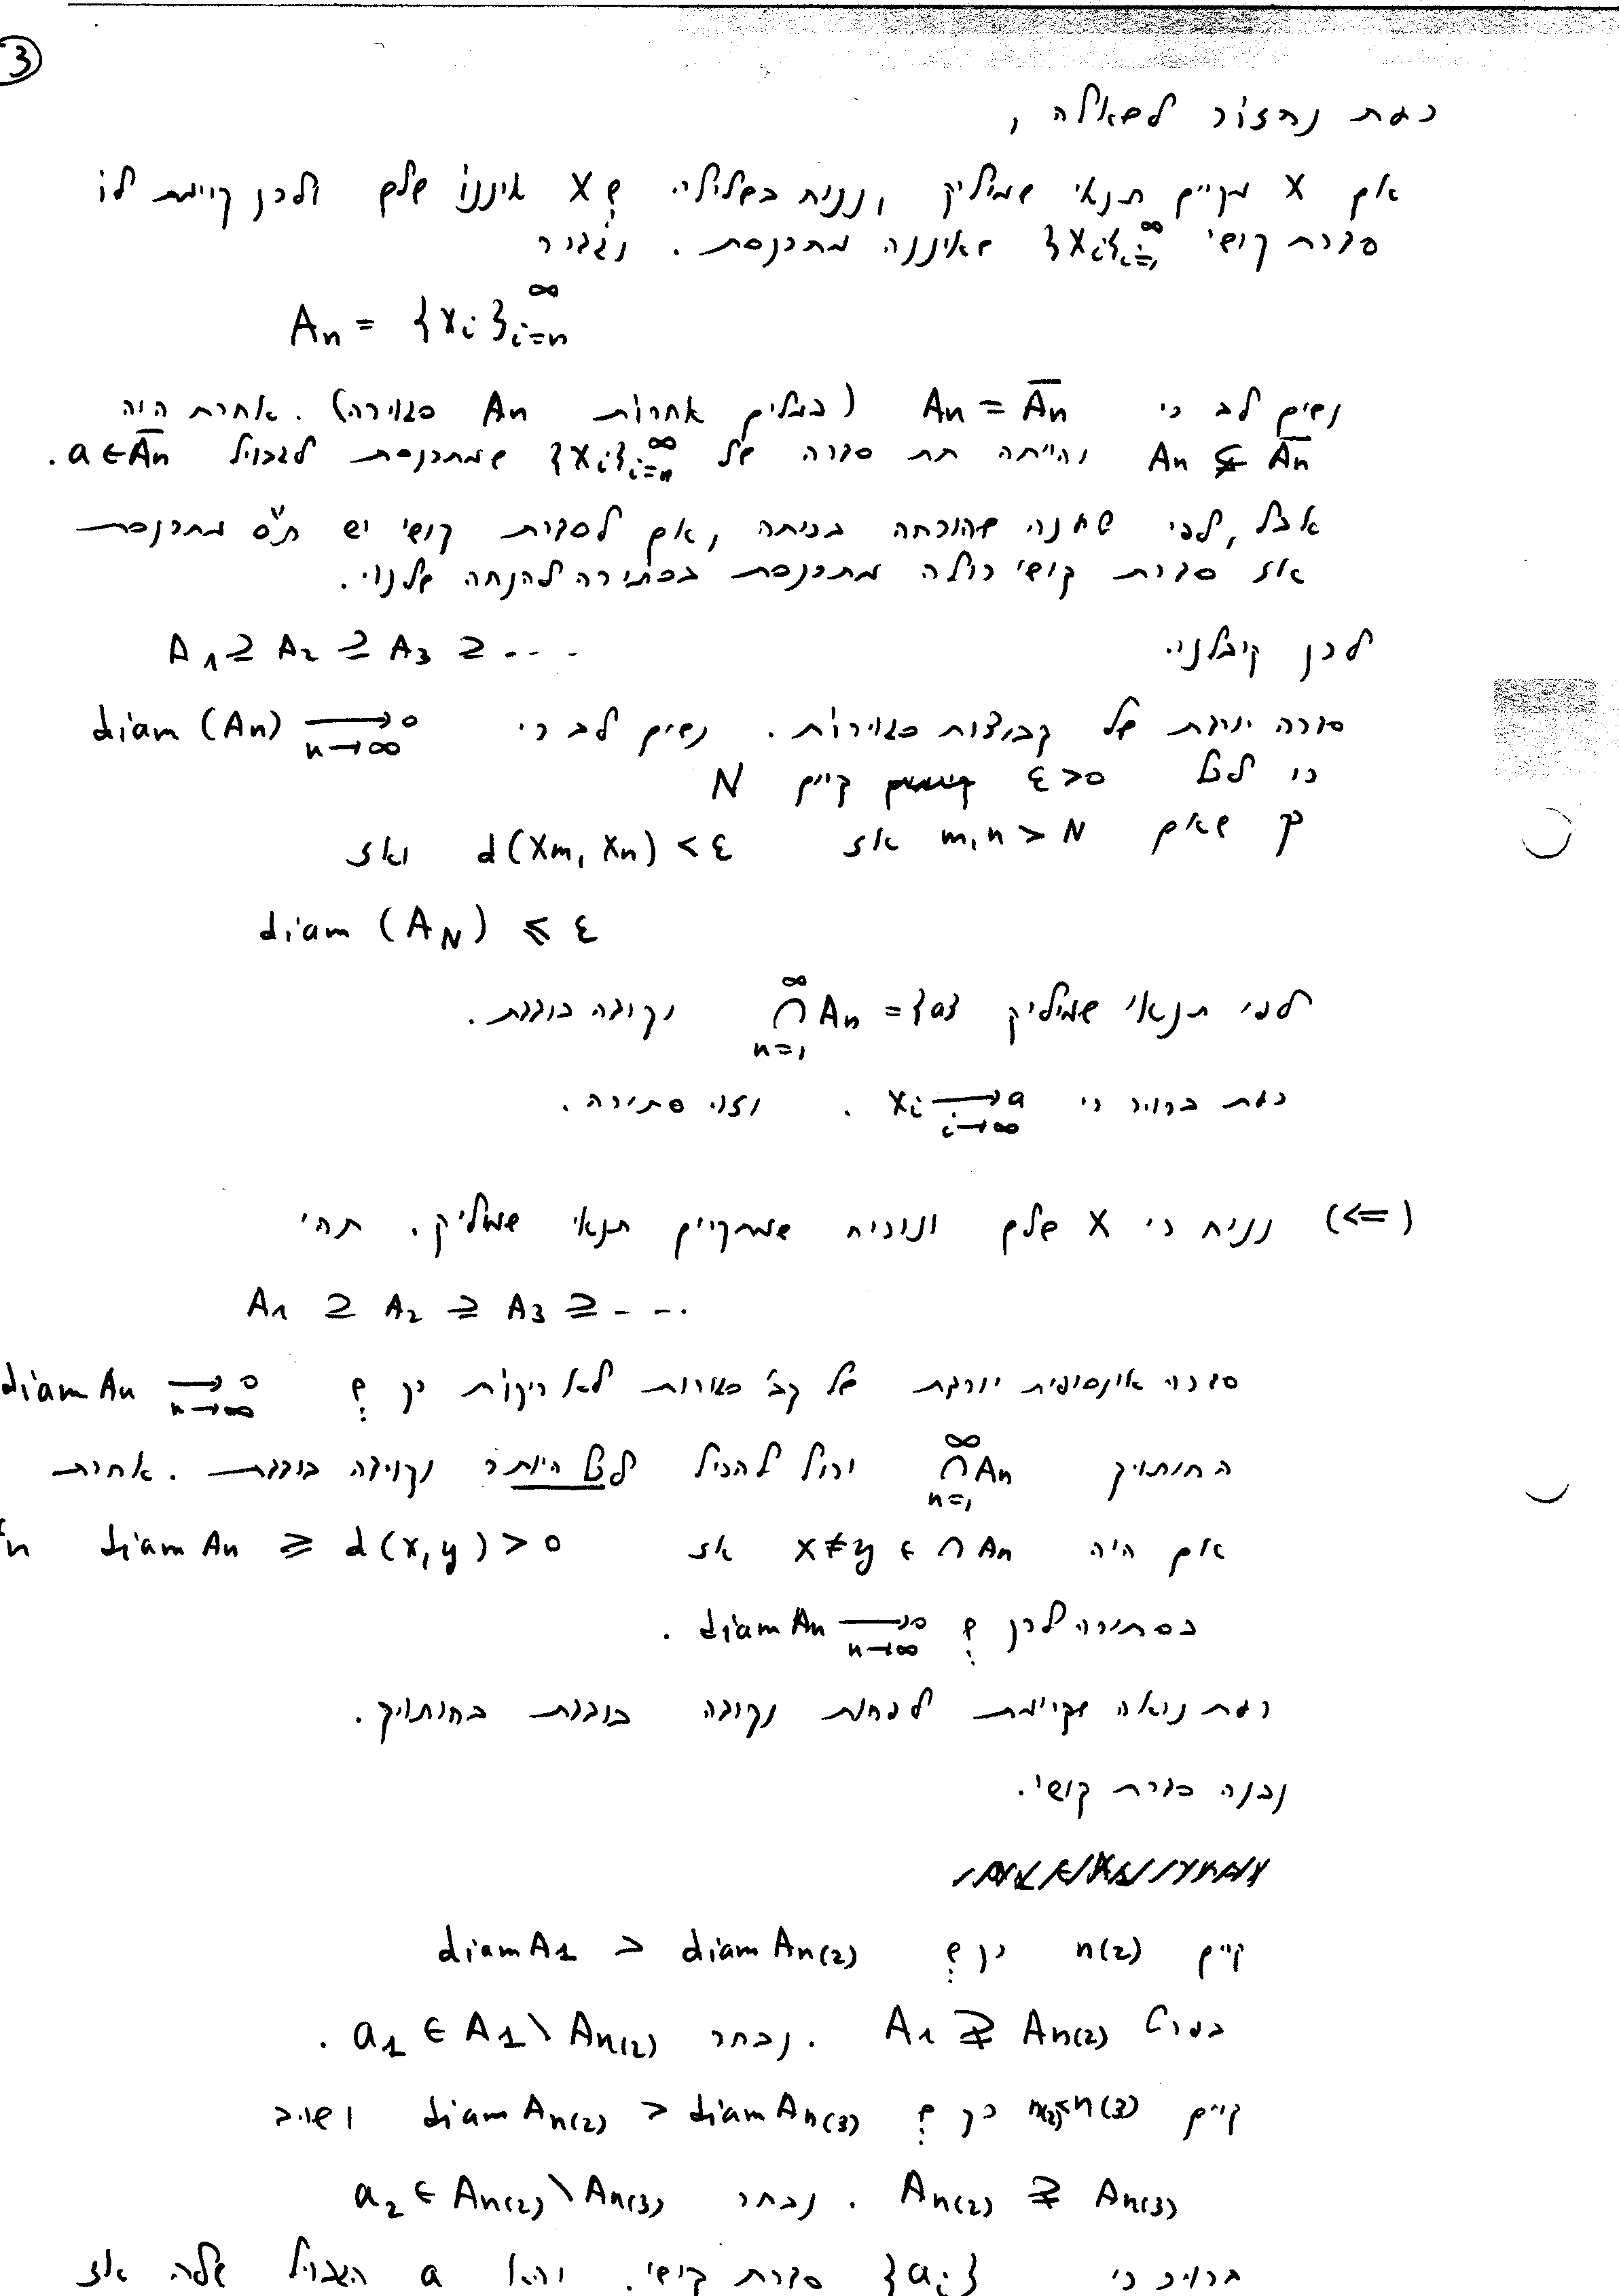 3
כעת נחזור לשאלה,
אם X מקיים תנאי שמיליק, ונניח בשלילי ש X איננו שלם ולכן קיימת לו
סדרת קושי {xᵢ}ᵢ₌₁^∞ שאיננה מתכנסת. נגדיר
Aₙ = {xᵢ}ᵢ₌ₙ^∞
נשים לב כי Aₙ = A̅ₙ (במלים אחרות Aₙ סגורה). אחרת היה
Aₙ ⊊ A̅ₙ והייתה תת סדרה של {xᵢ}ᵢ₌ₙ^∞ שמתכנסת לגבול a ∈ A̅ₙ.
אבל, לפי טענה שהוכחה בכיתה, אם לסדרת קושי יש ת"ס מתכנסת
אז סדרת קושי כולה מתכנסת בסתירה להנחה שלנו.
לכן קיבלנו A₁ ⊇ A₂ ⊇ A₃ ⊇ ...
סדרה יורדת של קבוצות סגורות. נשים לב כי diam (Aₙ) ⟶ 0 n→∞
כי לכל ε>0 קיים N
כך שאם m,n > N אז d(xₘ, xₙ) < ε ואז
diam (A_N) ≤ ε
לפי תנאי שמיליק ∩ₙ₌₁^∞ Aₙ = {a} נקודה בודדת.
כעת ברור כי xᵢ ⟶ a i→∞ . וזוי סתירה.
(=>) נניח כי X שלם ונוכיח שמקיים תנאי שמליק. תהי
A₁ ⊇ A₂ ⊇ A₃ ⊇ ...
סדרה אינסופית יורדת של קב' סגורות לא ריקות כך ש: diam Aₙ ⟶ 0 n→∞
החיתוך ∩ₙ₌₁^∞ Aₙ יכול להכיל לכל היותר נקודה בודדת. אחרת
אם היה x≠y ∈ ∩ Aₙ אז diam Aₙ ≥ d(x,y) > 0 n
בסתירה לכן ש: diam Aₙ ⟶ 0 n→∞ .
כעת נראה שקיימת לפחות נקודה בודדת בחיתוך.
נבנה סדרת קושי.
קיים n(2) כך ש: diam A₁ > diam Aₙ₍₂₎
בפרט A₁ ⊋ Aₙ₍₂₎ . נבחר a₁ ∈ A₁ \ Aₙ₍₂₎ .
קיים n(2)<n(3) כך ש: diam Aₙ₍₂₎ > diam Aₙ₍₃₎ ושוב
Aₙ₍₂₎ ⊋ Aₙ₍₃₎ . נבחר a₂ ∈ Aₙ₍₂₎ \ Aₙ₍₃₎
ברור כי {aᵢ} סדרת קושי. יהא a הגבול שלה אז